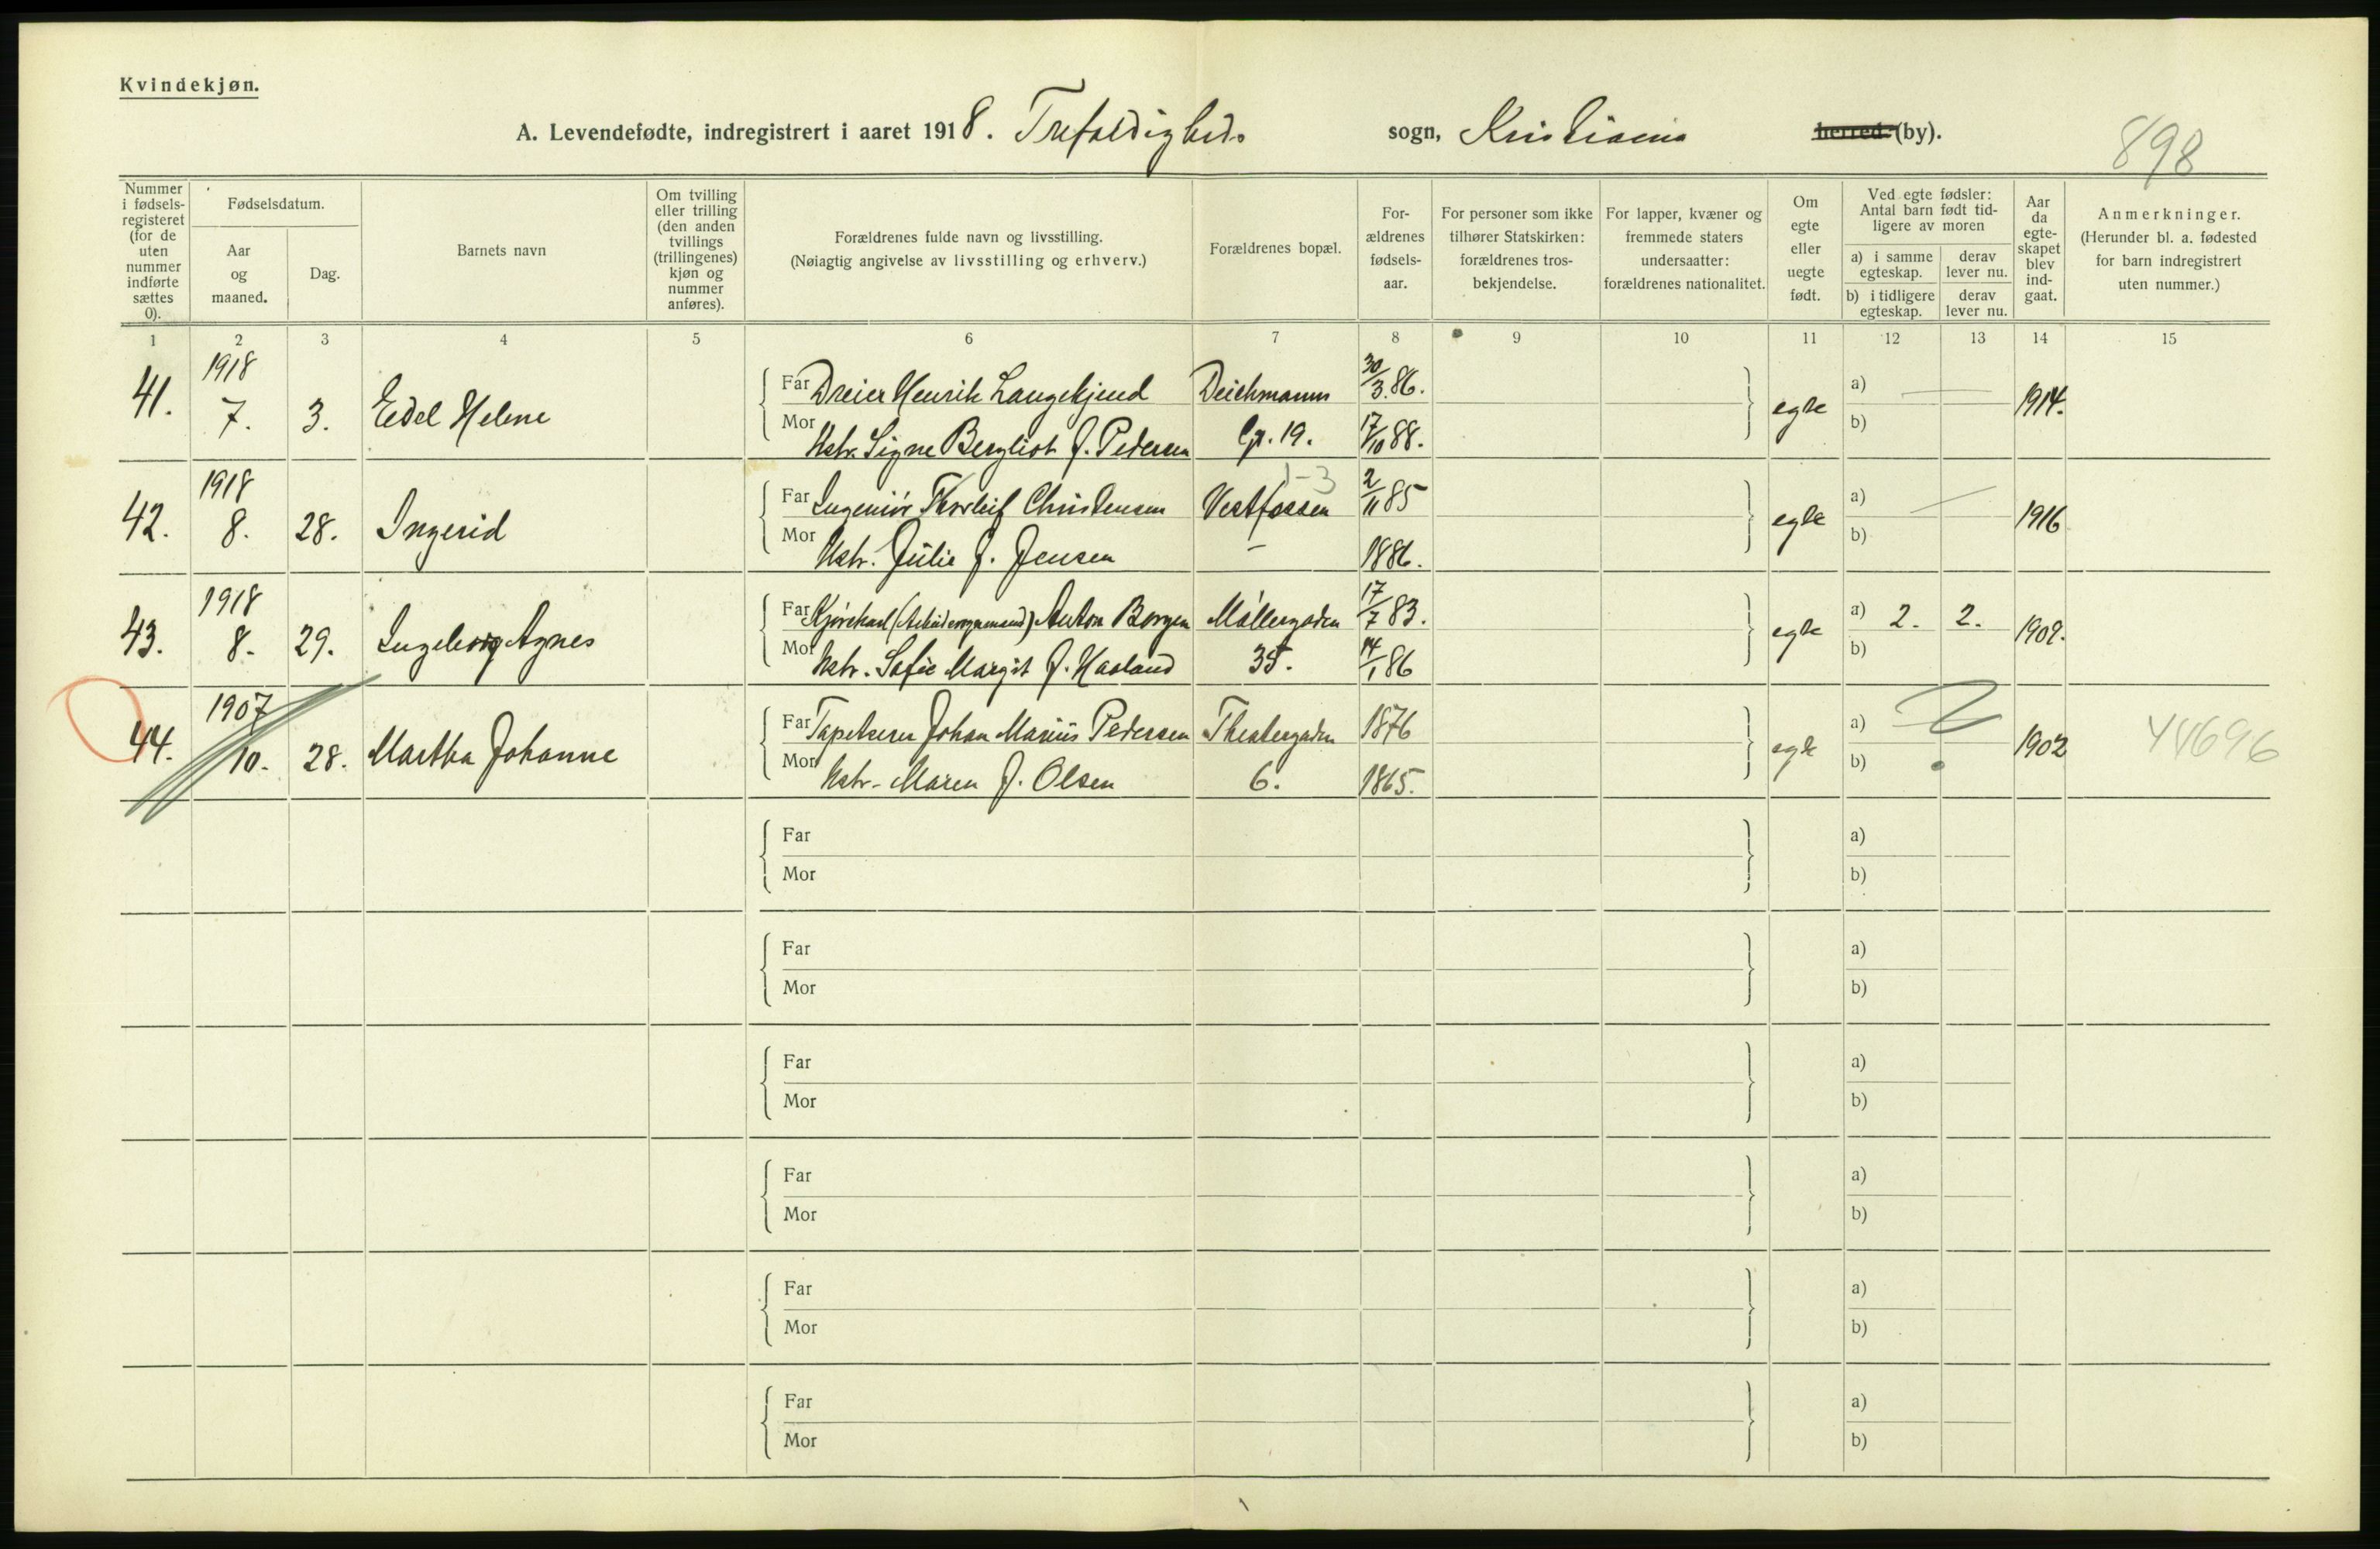 Kvindekjøn.
A. Levendefødte, indregistrert i aaret 1918. Trefoldigheds sogn, Kristiania herred. (by).
898
Nummer i fødsels-registeret (for de uten nummer indførte sættes 0).
Fødselsdatum.
Aar og maaned.
Dag.
Barnets navn
Om tvilling eller trilling (den anden tvillings (trillingenes) kjøn og nummer anføres).
Forældrenes fulde navn og livsstilling.
(Nøiagtig angivelse av livsstilling og erhverv.)
Forældrenes bopæl.
For-ældrenes fødsels-aar.
For personer som ikke tilhører Statskirken: forældrenes tros-bekjendelse.
For lapper, kvæner og fremmede staters undersaatter: forældrenes nationalitet.
Om egte eller uegte født.
Ved egte fødsler: Antal barn født tid-ligere av moren
a) i samme egteskap.
derav lever nu.
b) i tidligere egteskap.
derav lever nu.
Aar da egte-skapet blev ind-gaat.
Anmerkninger.
(Herunder bl. a. fødested for barn indregistrert uten nummer.)
1 2 3 4 5 6 7 8 9 10 11 12 13 14 15
1918
41. 7. 3. Edel Helene
Far Dreier Henrik Langekjend Deichmanns 30/3.86. egte a) 1914.
Mor Hstr. Signe Bergliot f. Pedersen Gt. 19. 17/10 88. b)
1-3
1918
42. 8. 28. Ingerid
Far Ingeniør Thorleif Christensen Vestfossen 2/11 85 egte a) 1916
Mor Hstr. Julie f. Jensen – 1886. b)
1918
43. 8. 29. Ingeborg Agnes
Far Kjørekarl Anton Borgen Møllergaden 17/7 83. egte a) 2. 2. 1909.
Mor Hstr. Sofie Margit f. Hasland 35. 14/1 86 b)
1907
44. 10. 28. Martha Johanne
Far Tapetserer Johan Marius Pedersen Theatergaden 1876 egte a) ? 1902 44696
Mor Hstr. Maren f. Olsen 6. 1865. b)
Far a)
Mor b)
Far a)
Mor b)
Far a)
Mor b)
Far a)
Mor b)
Far a)
Mor b)
Far a)
Mor b)